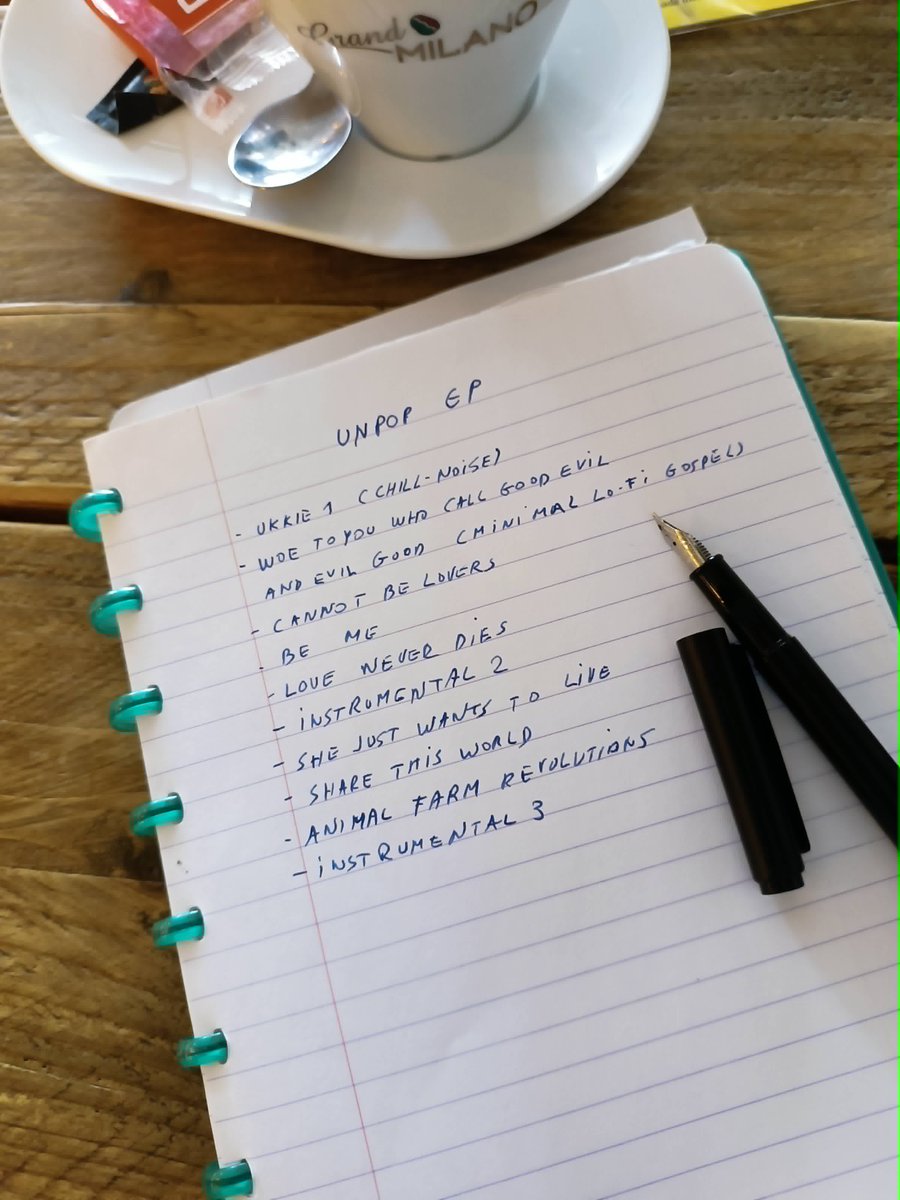 Grand
MILANO
UNPOP EP
- UKKIE 1 (CHILL-NOISE)
- WOE TO YOU WHO CALL GOOD EVIL
AND EVIL GOOD (MINIMAL LO-FI GOSPEL)
- CANNOT BE LOVERS
- BE ME
- LOVE NEVER DIES
- INSTRUMENTAL 2
- SHE JUST WANTS TO LIVE
- SHARE THIS WORLD
- ANIMAL FARM REVOLUTIONS
- INSTRUMENTAL 3